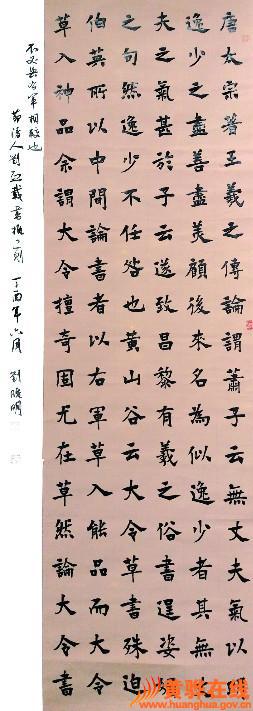 唐太宗著王羲之傳論謂蕭子云無丈夫氣以
逸少之盡善盡美顧後來名為似逸少者其無
夫之氣甚於子云遂致昌黎有羲之俗書逞姿
之句然逸少不任咎也黃山谷云大令草書殊迫
伯英所以中間論書者以右軍草入能品而大令
草入神品余謂大令擅奇固尤在草然論大令書
不必與右軍相較也
節清人劉熙載書概二則 丁酉年六月 劉曉明
黄骅在线
www.huanghua.gov.cn